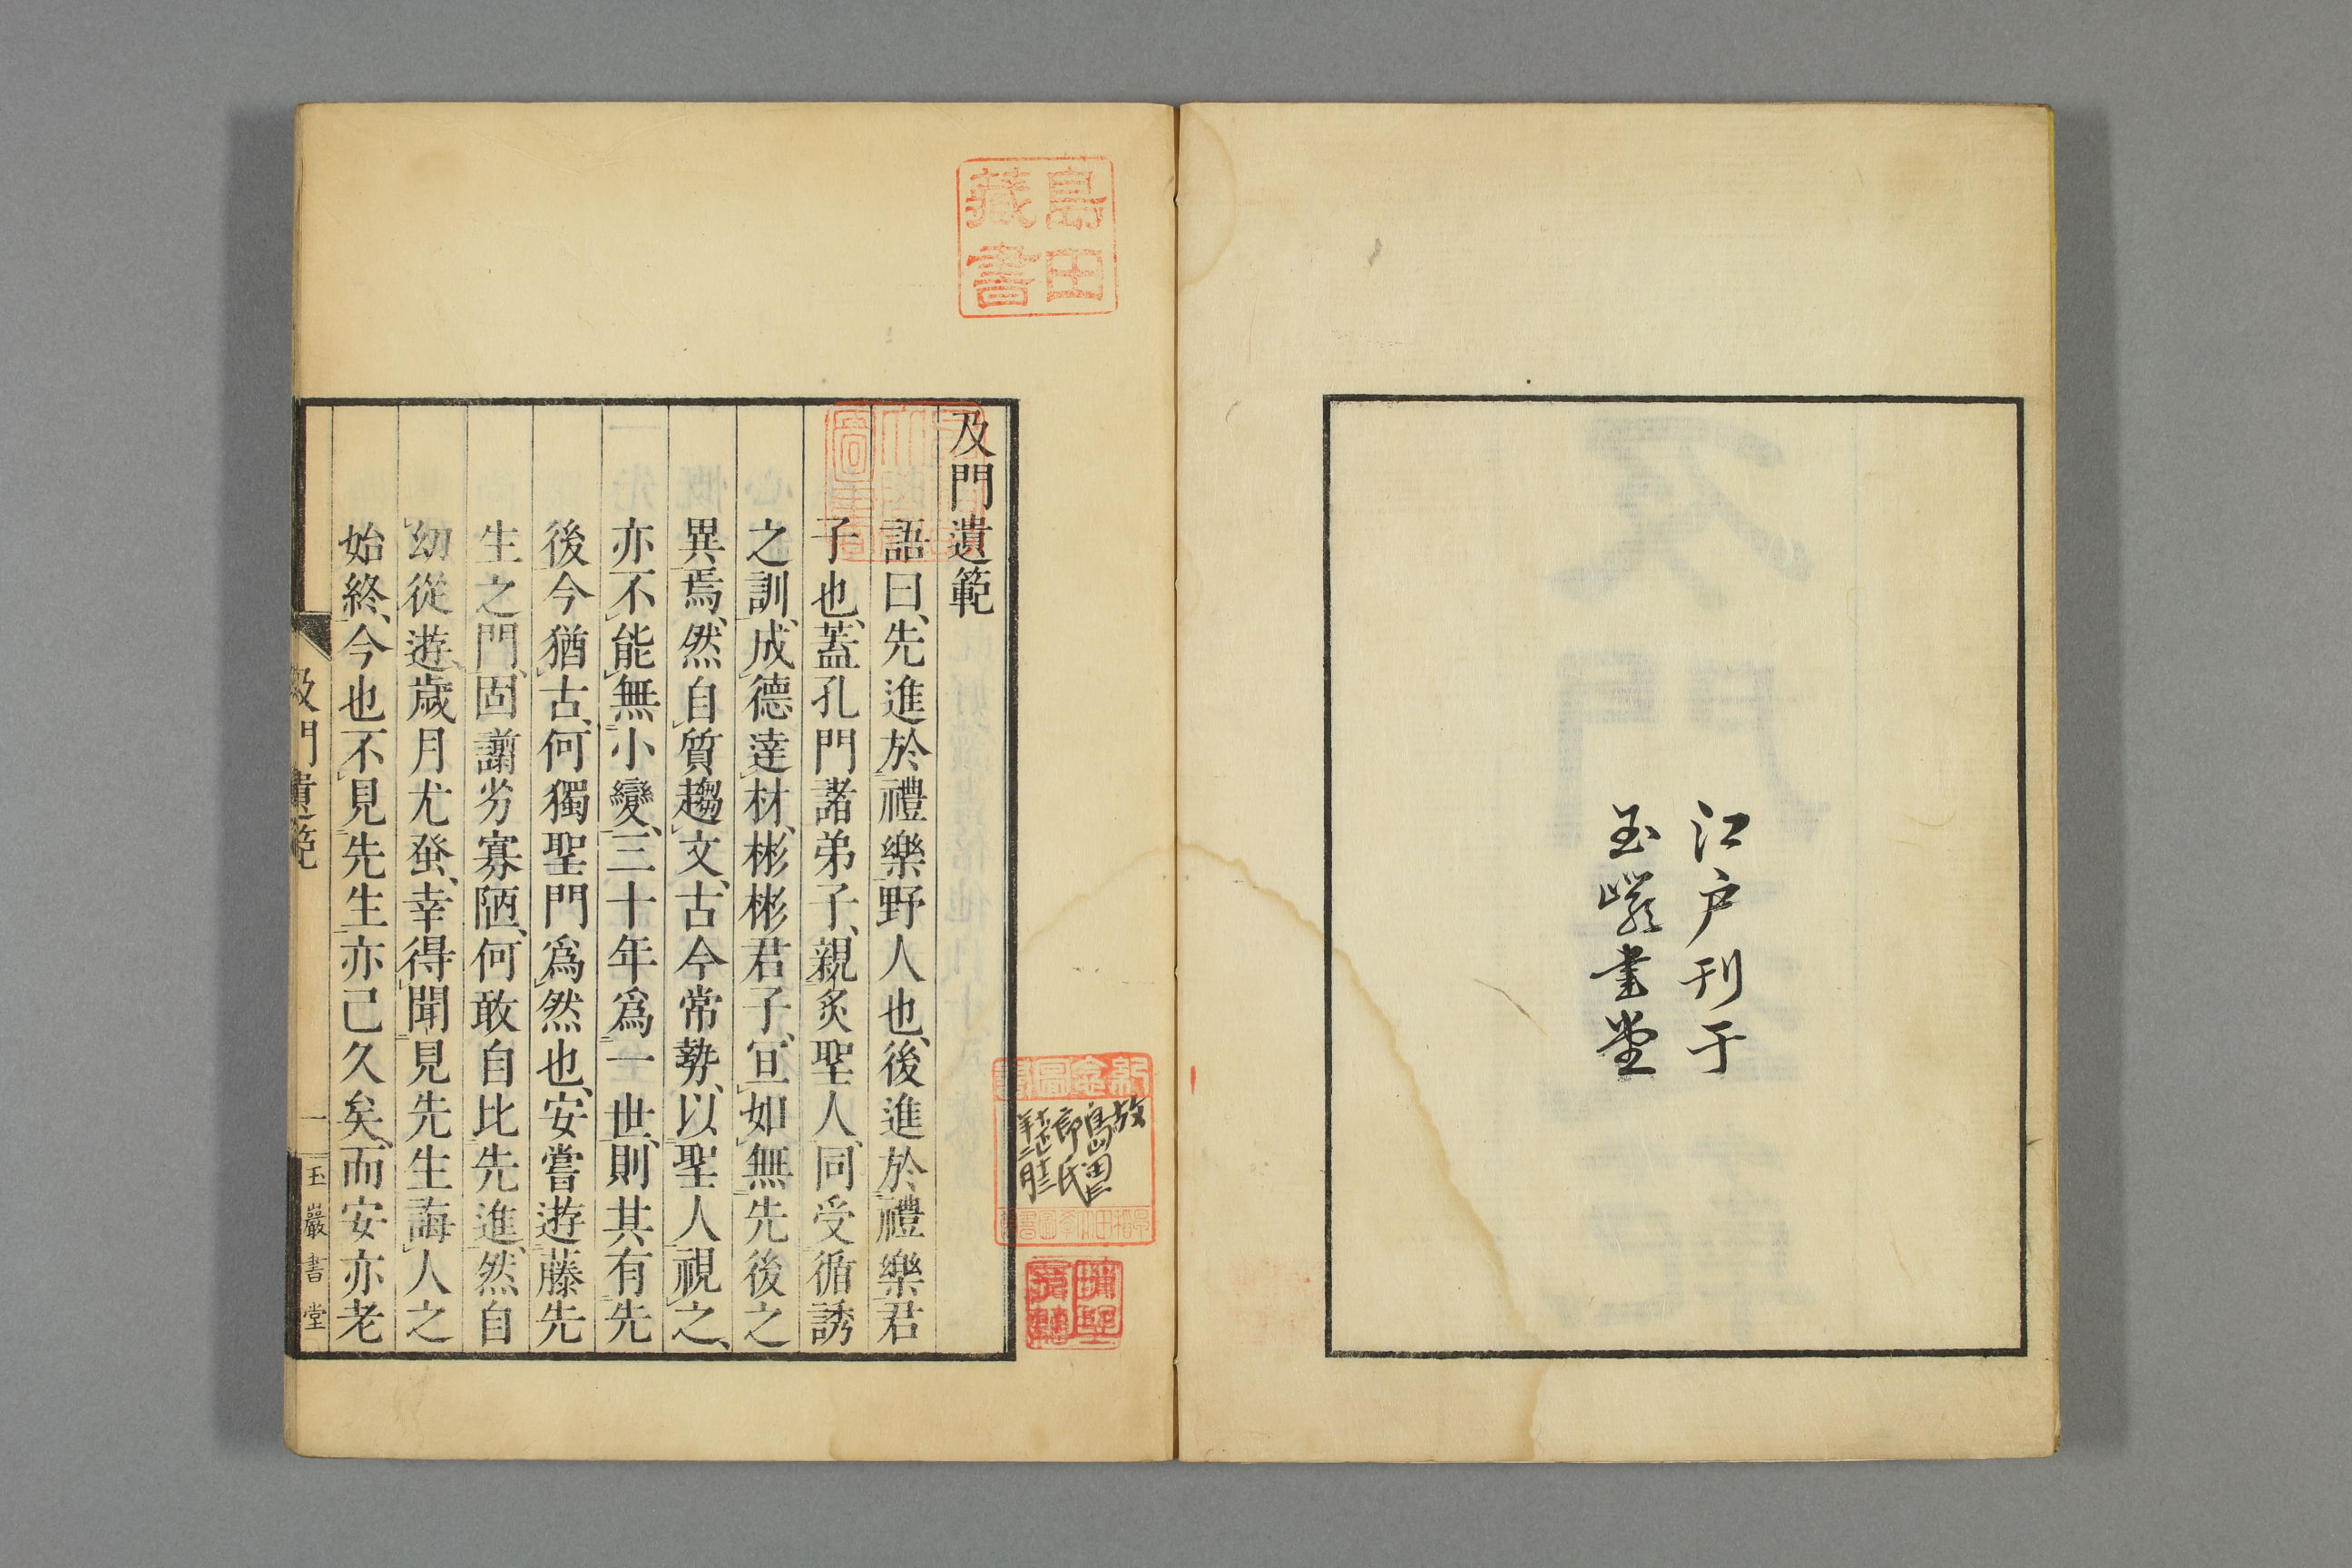 江戸刊于
玉巖書堂
島田
藏書
及門遺範
語曰、先進於禮樂野人也、後進於禮樂君
子也、蓋孔門諸弟子、親炙聖人、同受循誘
之訓、成德達材、彬彬君子、宜如無先後之
異焉、然自質趨文、古今常勢、以聖人視之、
亦不能無小變、三十年爲一世、則其有先
後今猶古、何獨聖門爲然也、安嘗遊藤先
生之門、固謭劣寡陋、何敢自比先進、然自
幼從遊、歲月尤發、幸得聞見先生誨人之
始終、今也不見先生亦已久矣、而安亦老
及門遺範
一
玉巖書堂
故島田三
郎氏